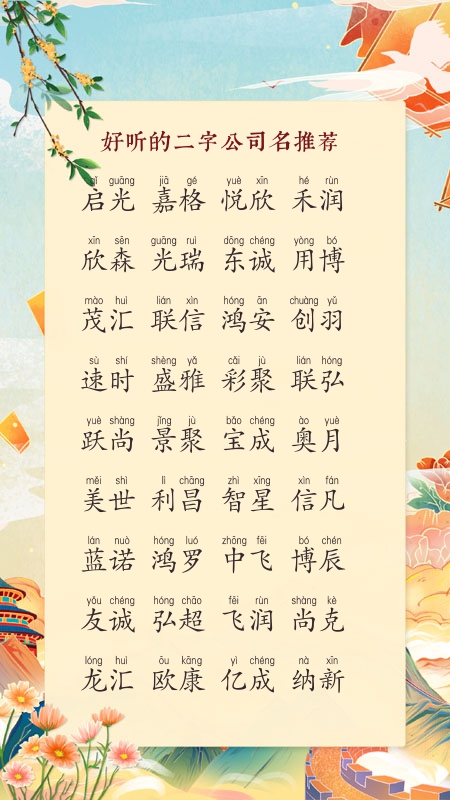 好听的二字公司名推荐
qǐ guāng jiā gé yuè xīn hé rùn
启光 嘉格 悦欣 禾润
xīn sēn guāng ruì dōng chéng yòng bó
欣森 光瑞 东诚 用博
mào huì lián xìn hóng ān chuàng yǔ
茂汇 联信 鸿安 创羽
sù shí shèng yǎ cǎi jù lián hóng
速时 盛雅 彩聚 联弘
yuè shàng jǐng jù bǎo chéng ào yuè
跃尚 景聚 宝成 奥月
měi shì lì chāng zhì xīng xìn fán
美世 利昌 智星 信凡
lán nuò hóng luó zhōng fēi bó chén
蓝诺 鸿罗 中飞 博辰
yǒu chéng hóng chāo fēi rùn shàng kè
友诚 弘超 飞润 尚克
lóng huì ōu kāng yì chéng nà xīn
龙汇 欧康 亿成 纳新